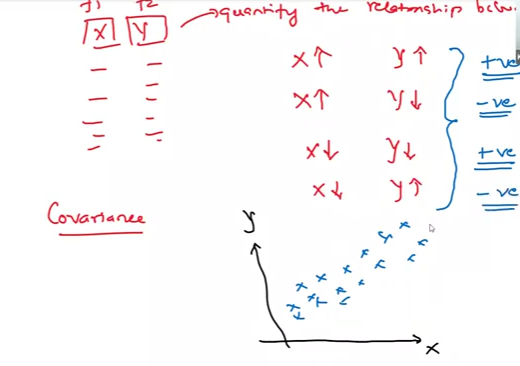 f1 f2
X Y → quantify the relationship betw.
X↑ Y↑ +ve
X↑ Y↓ -ve
X↓ Y↓ +ve
X↓ Y↑ -ve
Covariance
y
x